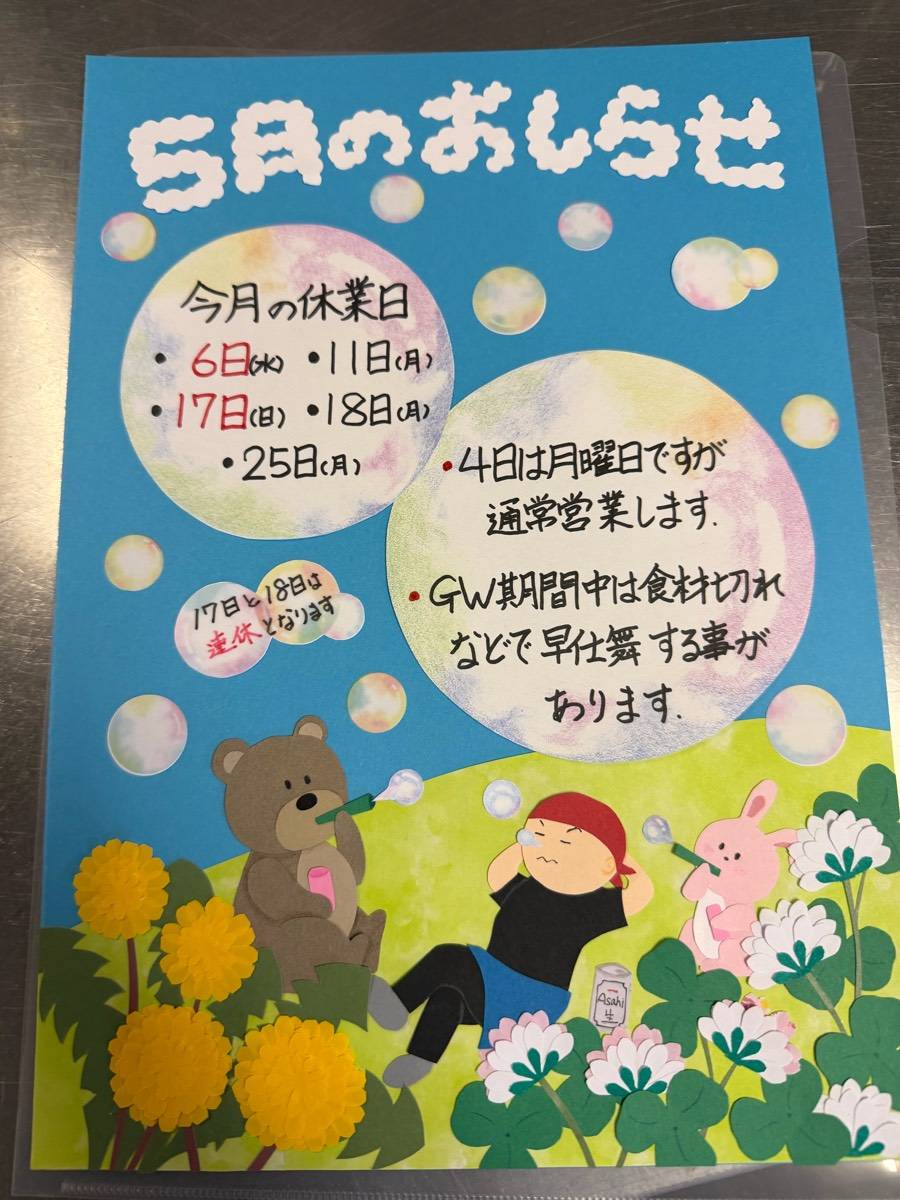 5月のおしらせ
今月の休業日
• 6日(水) • 11日(月)
• 17日(日) • 18日(月)
• 25日(月)
• 4日は月曜日ですが
通常営業します.
• GW期間中は食材切れ
などで早仕舞する事が
あります.
17日と18日は
連休となります
Asahi
生